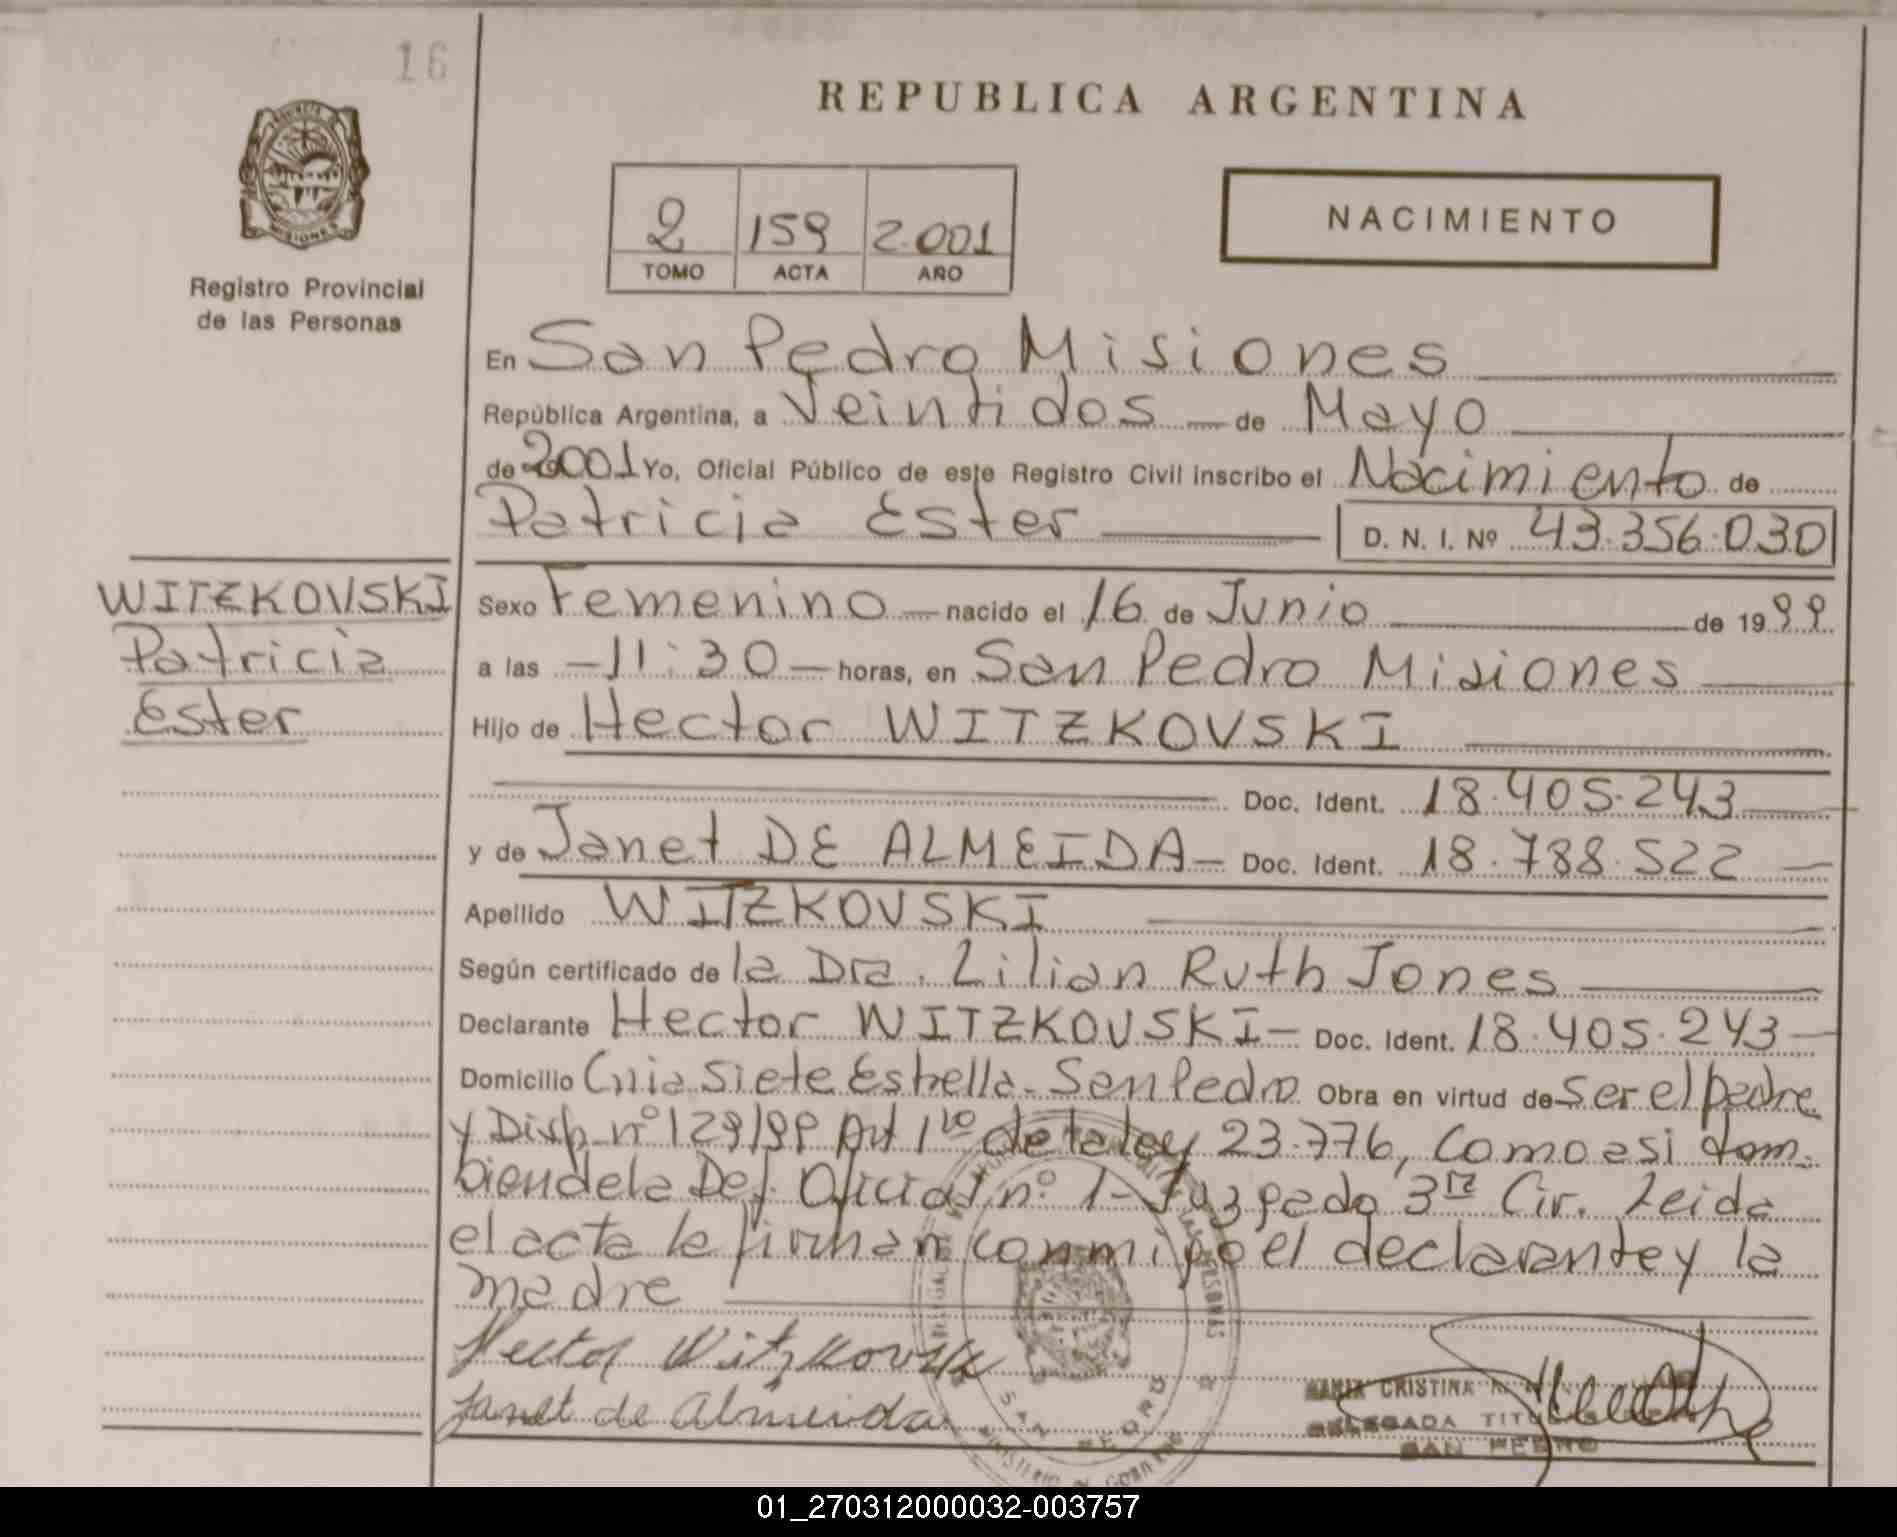 16
REPUBLICA ARGENTINA
2 159 2.001
TOMO ACTA AÑO
NACIMIENTO
MISIONES
Registro Provincial
de las Personas
En San Pedro Misiones
República Argentina, a Veintidos de Mayo
de 2001 Yo, Oficial Público de este Registro Civil inscribo el Nacimiento de
Patricia Ester D. N. I. Nº 43.356.030
WITZKOVSKI
Patricia
Ester
Sexo Femenino nacido el 16 de Junio de 1999
a las 11:30 horas, en San Pedro Misiones
Hijo de Hector WITZKOVSKI
Doc. Ident. 18.405.243
y de Janet DE ALMEIDA Doc. Ident. 18.788.522
Apellido WITZKOVSKI
Según certificado de la Dra. Lilian Ruth Jones
Declarante Hector WITZKOVSKI Doc. Ident. 18.405.243
Domicilio Cnia Siete Estrella - San Pedro Obra en virtud de ser el padre
y Disp. nº 129/99 Art 1ro de la ley 23.776, como asi tam-
bien de la Def. Oficial nº 1 - Juzgado 3ra Cir. Leida
el acta la firman conmigo el declarante y la
madre
Hector Witzkovski
Janet de Almeida
SAN PEDRO
MARIA CRISTINA
DELEGADA TITULAR
SAN PEDRO
01_270312000032-003757